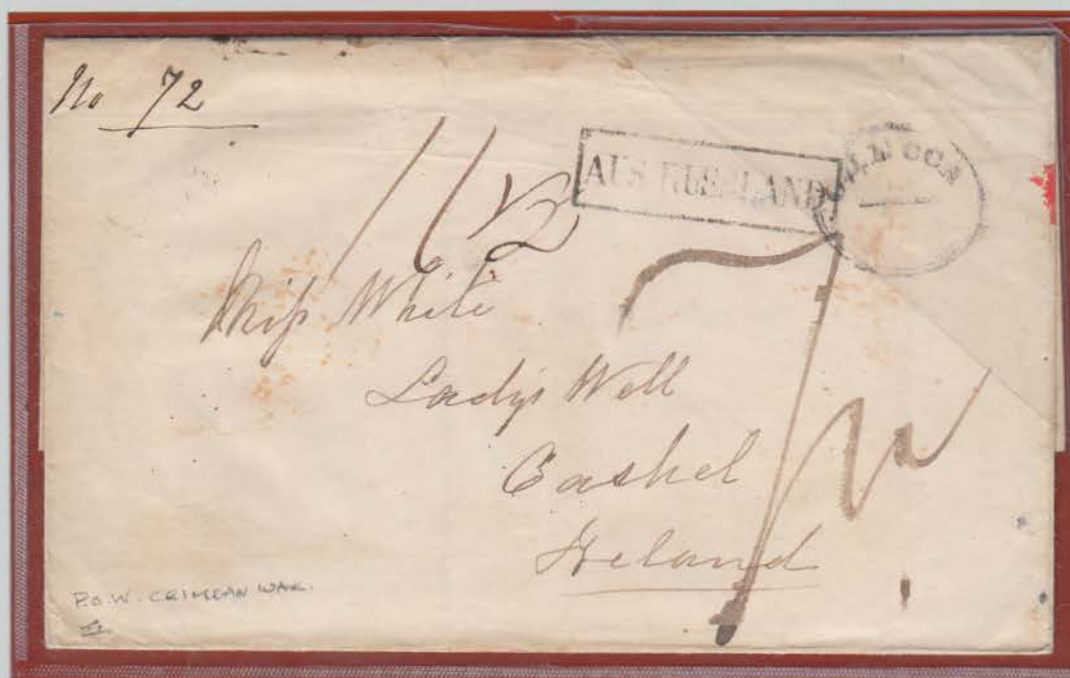 No 72
11 1/2
AUS RUSSLAND
Miss White
Ladys Well
Cashel
Ireland
P.O.W. CRIMEAN WAR.